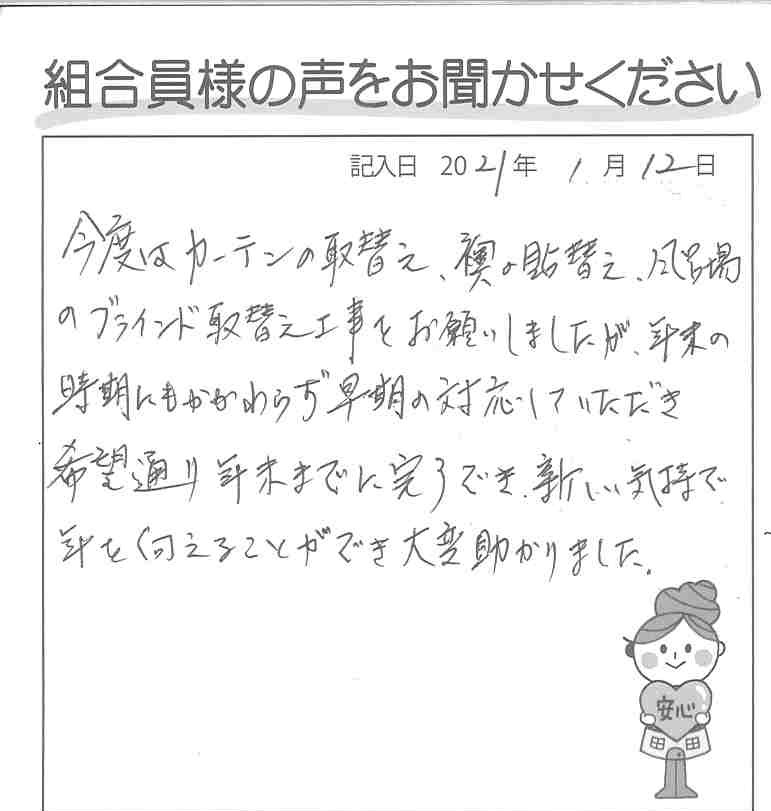 組合員様の声をお聞かせください
記入日 2021年 1月12日
今度はカーテンの取替え、襖の貼替え、風呂場
のブラインド取替え工事をお願いしましたが、年末の
時期にもかかわらず早期の対応していただき
希望通り年末までに完了でき、新しい気持で
年を迎えることができ大変助かりました。
安心